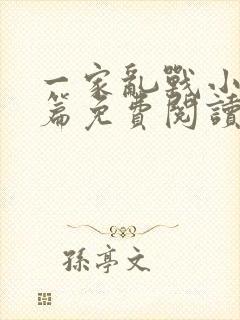 一家亂戰小
篇免費閱讀
孫亭文